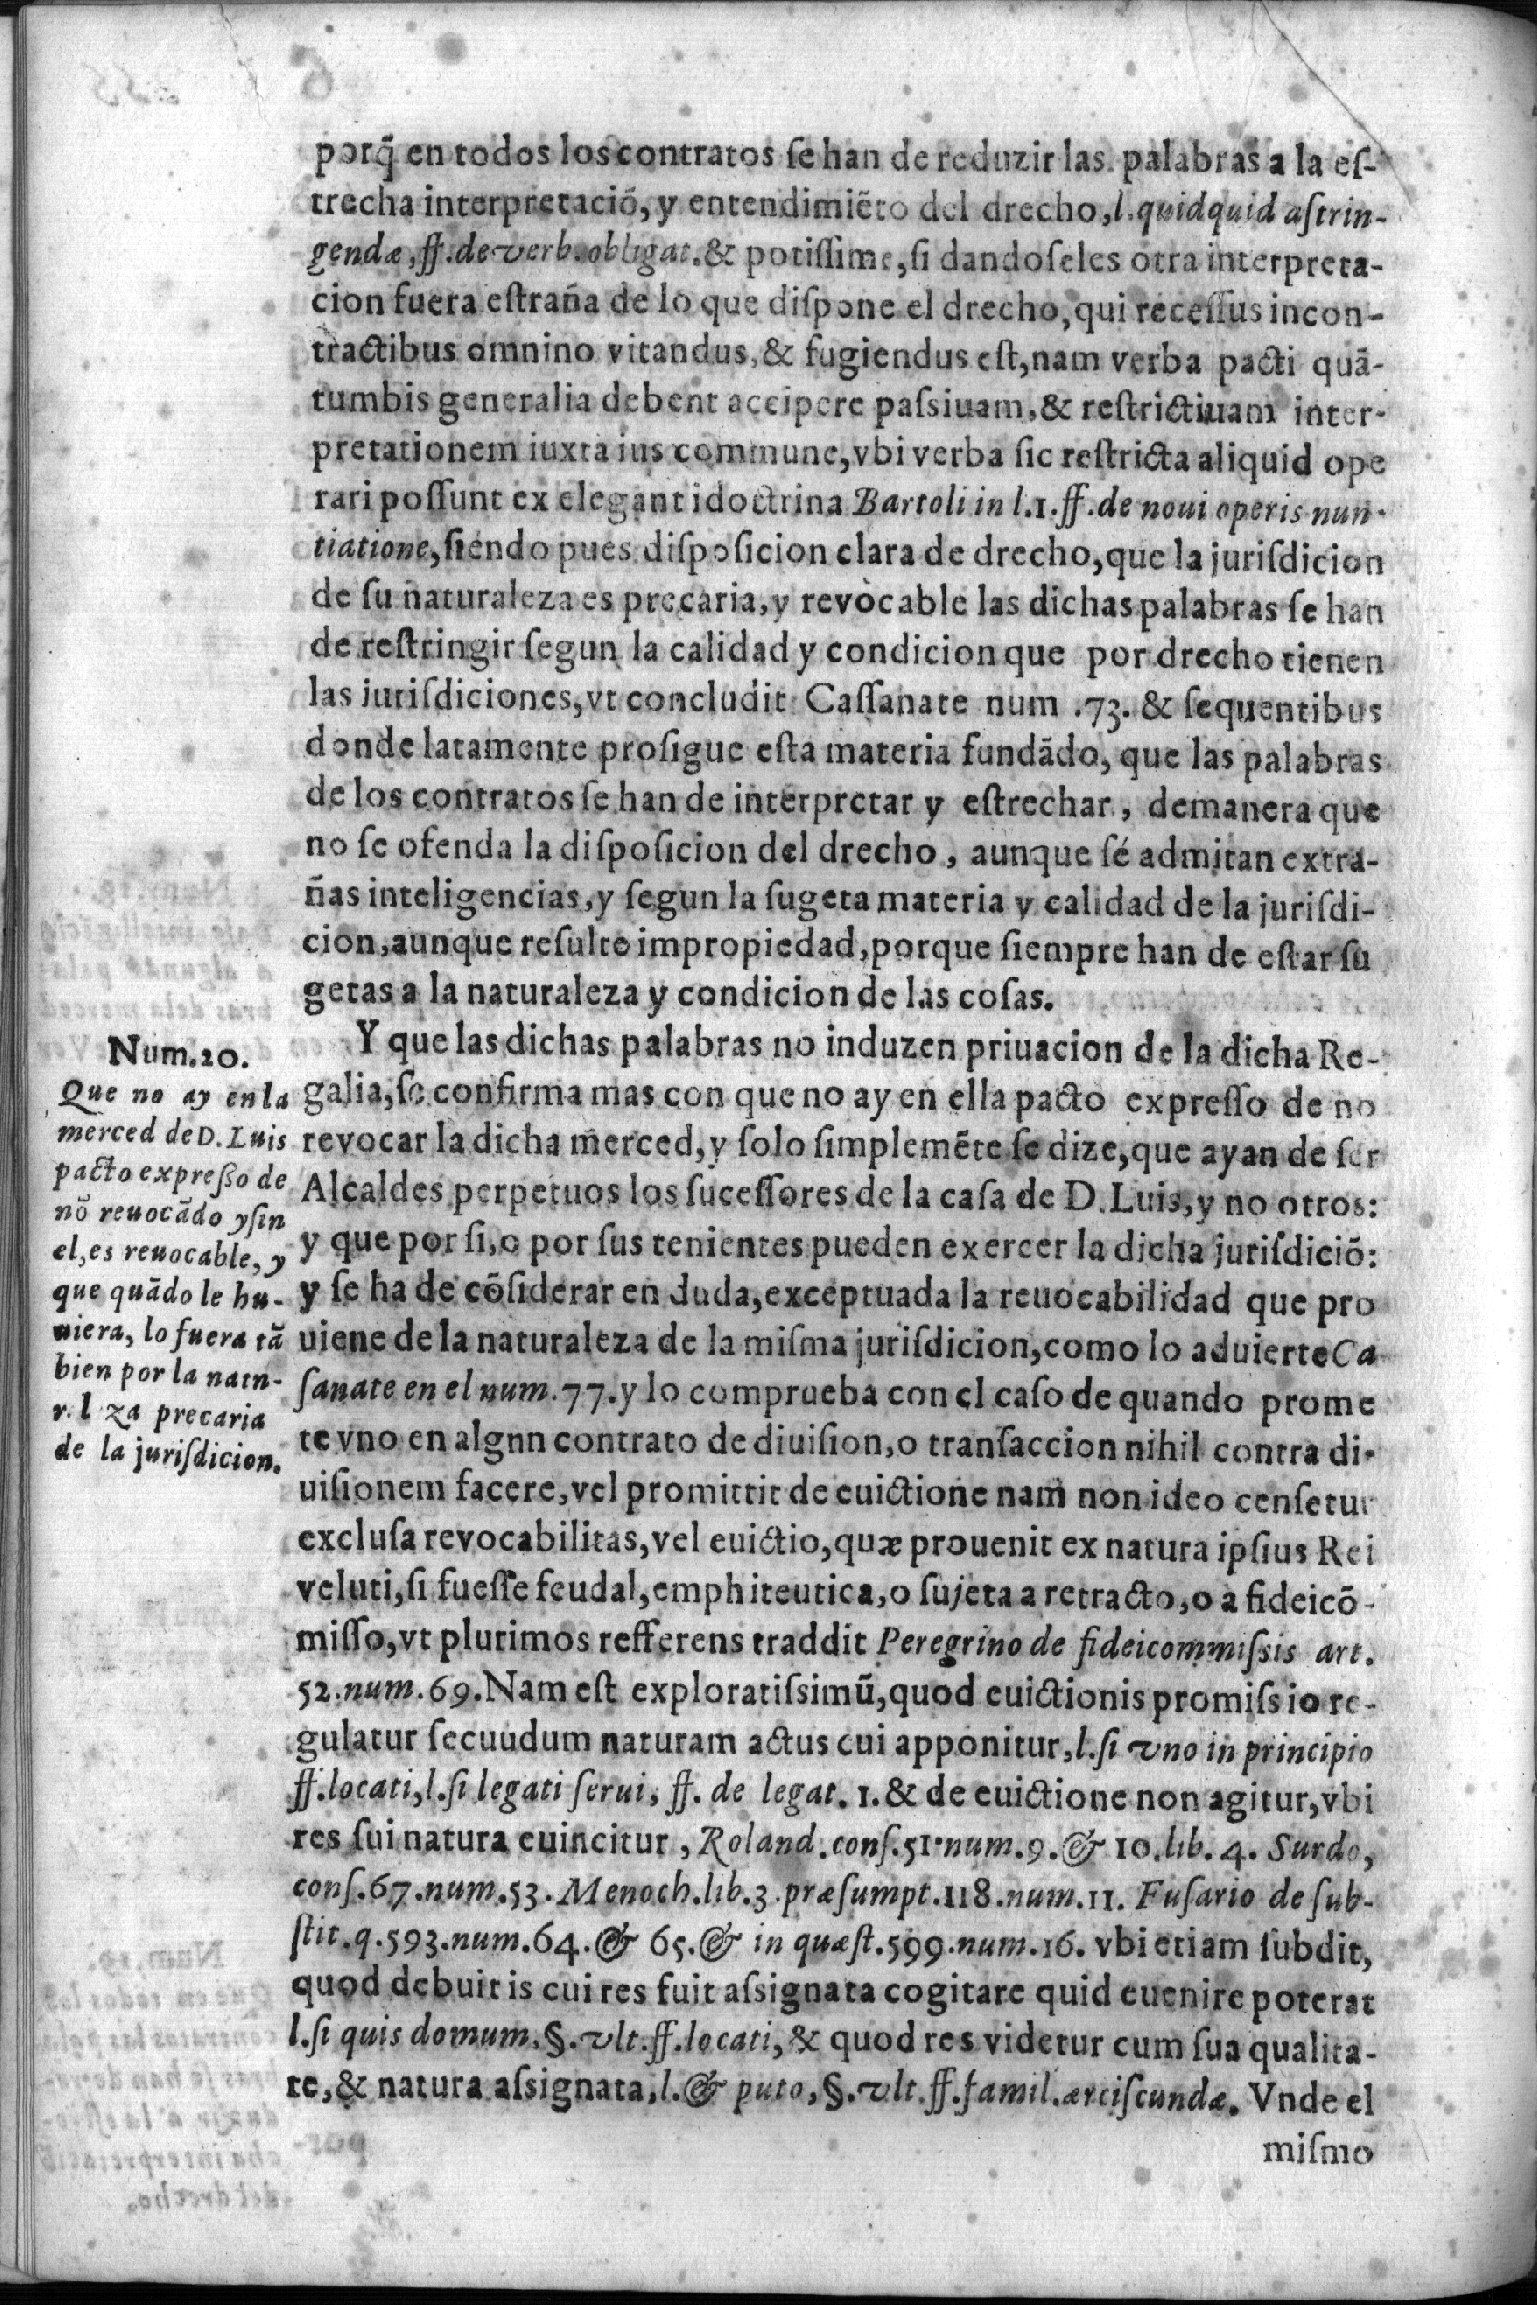 porq̃ en todos los contratos ſe han de reduzir las palabras a la eſ-
trecha interpretaciõ, y entendimiẽto del drecho, l. quidquid aſtrin-
gendæ, ff. de verb. obligat. & potiſſime, ſi dandoſeles otra interpreta-
cion fuera eſtraña de lo que diſpone el drecho, qui receſſus incon-
tractibus omnino vitandus, & fugiendus eſt, nam verba pacti quã-
tumbis generalia debent accipere paſsiuam, & reſtrictiuam inter-
pretationem iuxta ius commune, vbi verba ſic reſtricta aliquid ope
rari poſſunt ex elegant idoctrina Bartoli in l. 1. ff. de noui operis nun-
tiatione, ſiendo pues diſpoſicion clara de drecho, que la juriſdicion
de ſu naturaleza es precaria, y revocable las dichas palabras ſe han
de reſtringir ſegun la calidad y condicion que por drecho tienen
las juriſdiciones, vt concludit Caſſanate num .73. & ſequentibus
donde latamente proſigue eſta materia fundãdo, que las palabras
de los contratos ſe han de interpretar y eſtrechar, demanera que
no ſe ofenda la diſpoſicion del drecho, aunque ſé admitan extra-
ñas inteligencias, y ſegun la ſugeta materia y calidad de la juriſdi-
cion, aunque reſulte impropiedad, porque ſiempre han de eſtar ſu
getas a la naturaleza y condicion de las coſas.
Y que las dichas palabras no induzen priuacion de la dicha Re-
galia, ſe confirma mas con que no ay en ella pacto expreſſo de no
revocar la dicha merced, y ſolo ſimplemẽte ſe dize, que ayan de ſer
Alcaldes perpetuos los ſuceſſores de la caſa de D. Luis, y no otros:
y que por ſi, o por ſus tenientes pueden exercer la dicha juriſdiciõ:
y ſe ha de cõſiderar en duda, exceptuada la reuocabilidad que pro
uiene de la naturaleza de la miſma juriſdicion, como lo aduierte Ca-
ſanate en el num. 77. y lo comprueba con el caſo de quando prome
te vno en algnn contrato de diuiſion, o tranſaccion nihil contra di-
uiſionem facere, vel promittit de euictione nam non ideo cenſetur
excluſa revocabilitas, vel euictio, quæ prouenit ex natura ipſius Rei
veluti, ſi fueſſe feudal, emphiteutica, o ſujeta a retracto, o a fideicõ-
miſſo, vt plurimos refferens traddit Peregrino de fideicommiſsis art.
52. num. 69. Nam eſt exploratiſsimũ, quod euictionis promiſs io re-
gulatur ſecuudum naturam actus cui apponitur, l. ſi vno in principio
ff. locati, l. ſi legati ſerui, ff. de legat. 1. & de euictione non agitur, vbi
res ſui natura euincitur, Roland. conſ. 51. num. 9. & 10. lib. 4. Surdo,
conſ. 67. num. 53. Menoch. lib. 3. præſumpt. 118. num. 11. Fuſario de ſub-
ſtit. q. 593. num. 64. & 65. & in quæſt. 599. num. 16. vbi etiam ſubdit,
quod debuit is cui res fuit aſsignata cogitare quid euenire poterat
l. ſi quis domum. §. vlt. ff. locati, & quod res videtur cum ſua qualita-
te, & natura aſsignata, l. & puto, §. vlt. ff. famil. ærciſcundæ. Vnde el
miſmo
Num. 20.
Que no ay en la
merced de D. Luis
pacto expreſſo de
nõ reuocãdo y ſin
el, es reuocable, y
que quãdo le hu-
uiera, lo fuera tã
bien por la natu-
r l za precaria
de la juriſdicion.